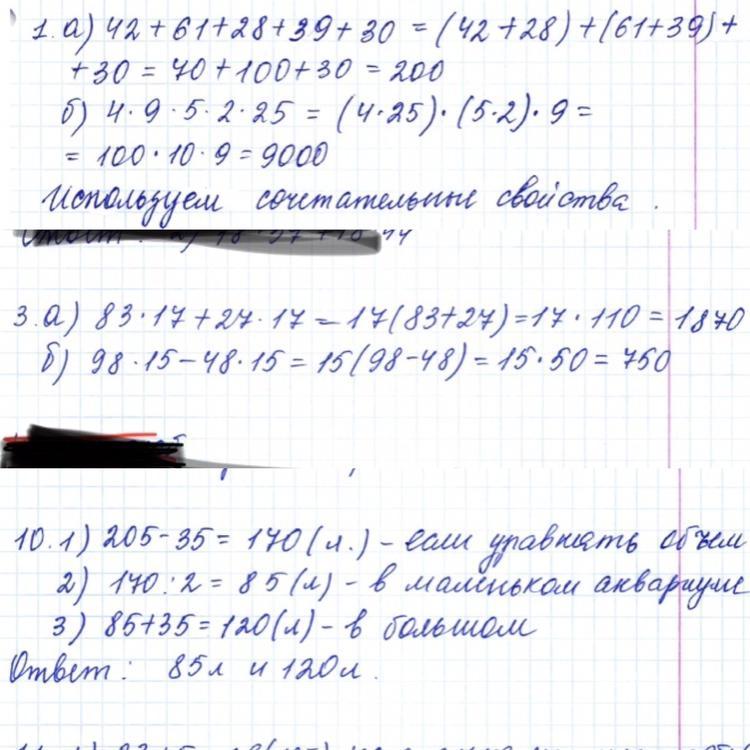 1. а) 42 + 61 + 28 + 39 + 30 = (42 + 28) + (61 + 39) +
+ 30 = 70 + 100 + 30 = 200
б) 4 · 9 · 5 · 2 · 25 = (4 · 25) · (5 · 2) · 9 =
= 100 · 10 · 9 = 9000
Используем сочетательные свойства.
3. а) 83 · 17 + 27 · 17 = 17(83 + 27) = 17 · 110 = 1870
б) 98 · 15 - 48 · 15 = 15(98 - 48) = 15 · 50 = 750
10. 1) 205 - 35 = 170 (л.) - если уравнять объем
2) 170 : 2 = 85 (л) - в маленьком аквариуме
3) 85 + 35 = 120 (л) - в большом
Ответ: 85 л и 120 л.